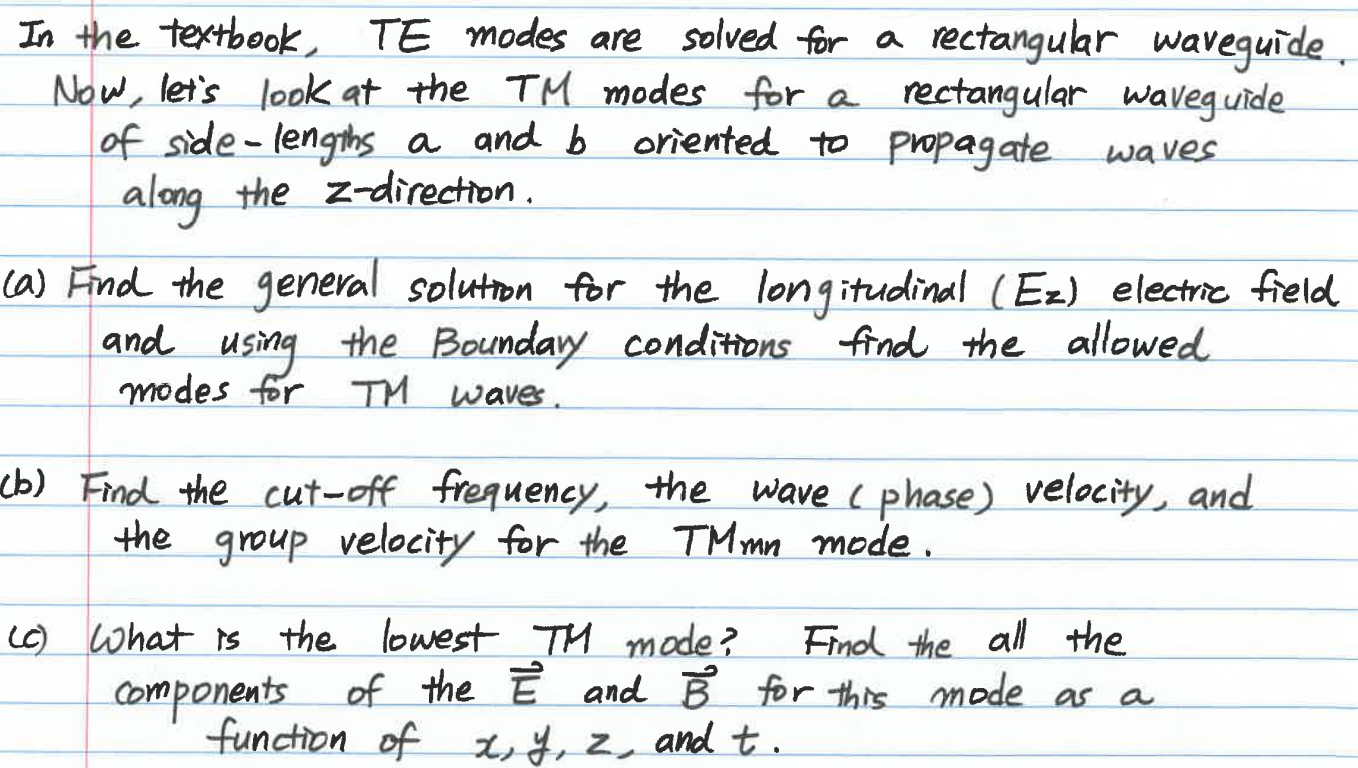 In the textbook, TE modes are solved for a rectangular waveguide.
Now, let's look at the TM modes for a rectangular waveguide
of side-lengths a and b oriented to propagate waves
along the z-direction.
(a) Find the general solution for the longitudinal (Ez) electric field
and using the Boundary conditions find the allowed
modes for TM waves.
(b) Find the cut-off frequency, the wave (phase) velocity, and
the group velocity for the TMmn mode.
(c) What is the lowest TM mode? Find the all the
components of the E⃗ and B⃗ for this mode as a
function of x, y, z, and t.